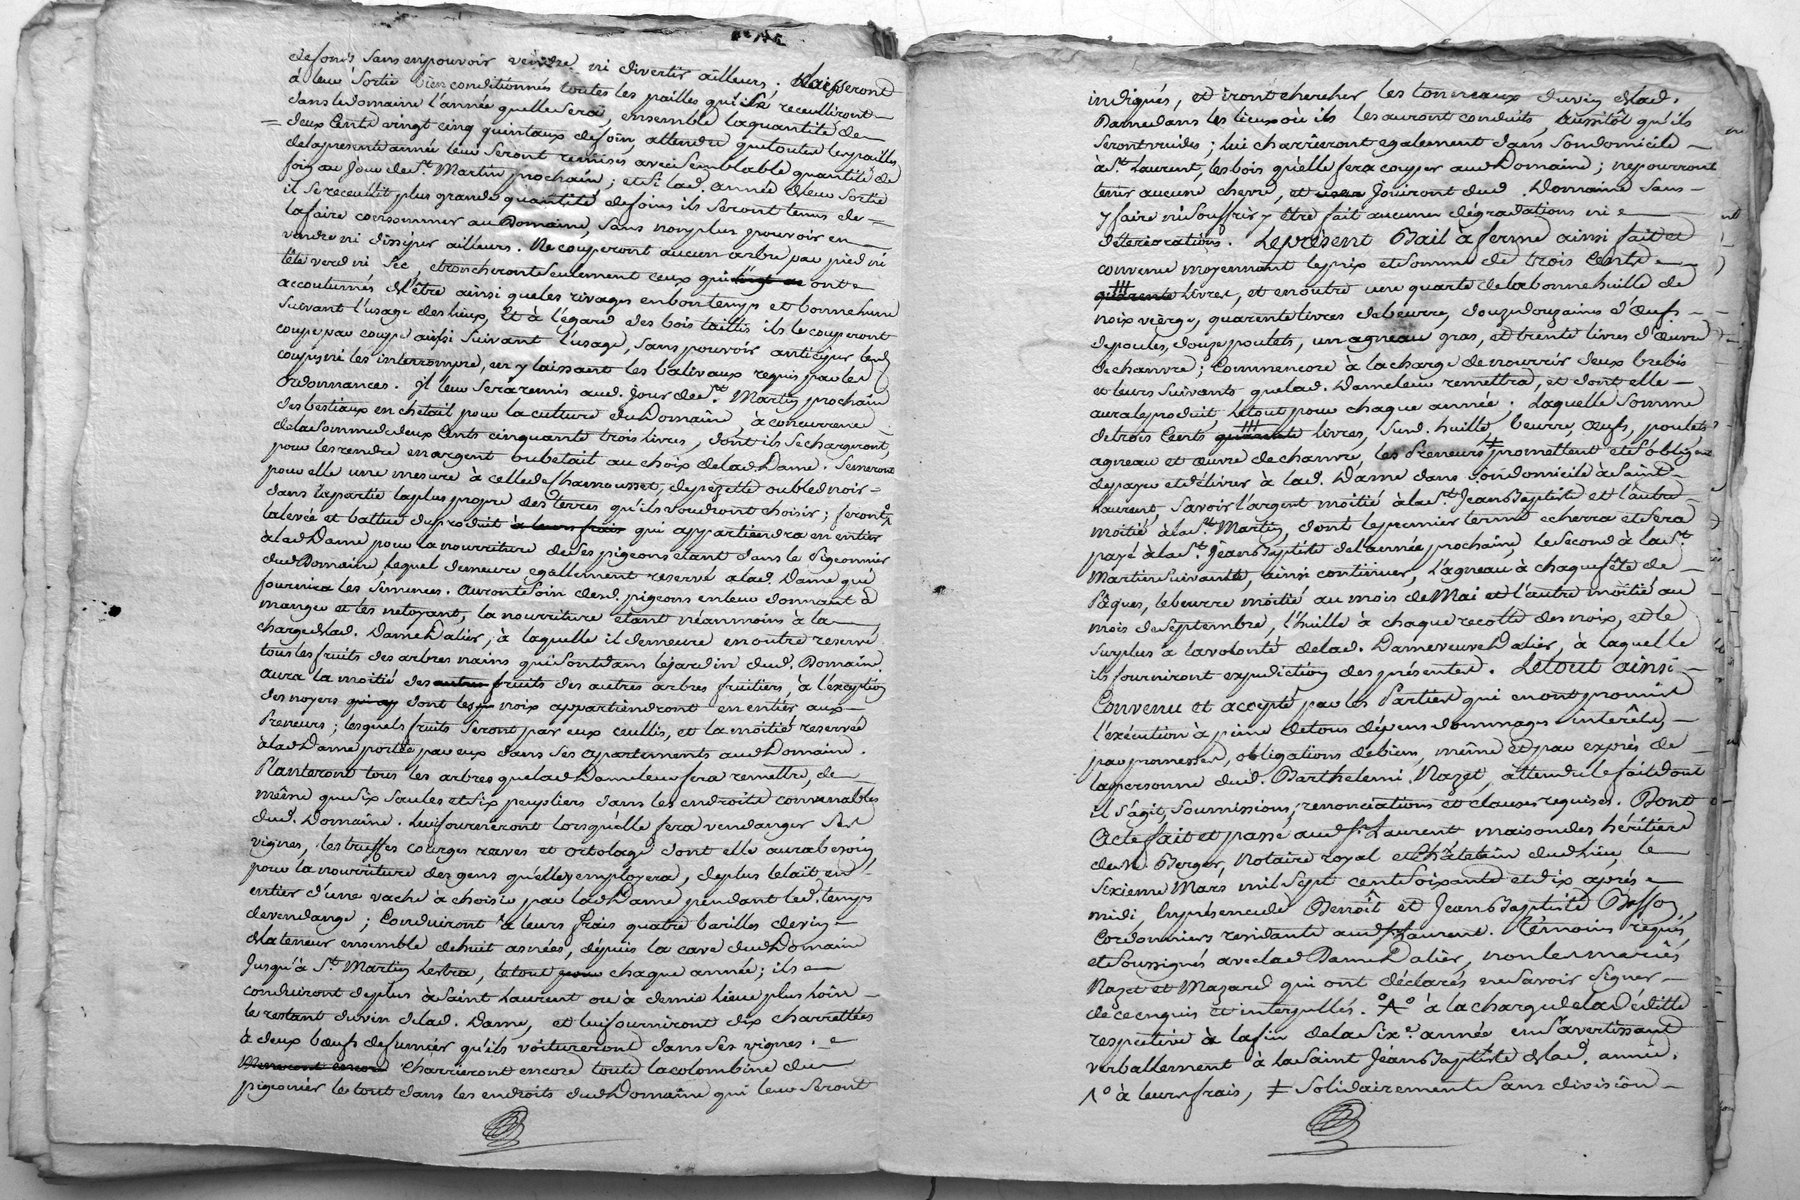 de foins sans en pouvoir vendre ni divertir ailleurs ; Laisseront
à leur sortie bien conditionnés toutes les pailles qu'ils recueilliront
dans le domaine l'année quelle sera, ensemble la quantité de
deux Cents vingt cinq quintaux de foin, attendu que toutes les pailles
de la presente année leur seront remises avec semblable quantité de
foin au jour de St. Martin prochain ; et si lad. année de leur sortie
il se receuillit plus grande quantité de foins ils seront tenus de
la faire consommer au Domaine, sans non plus pouvoir en
vendre ni dissiper ailleurs. Ne couperont aucun arbre par pied ni
tête verd ni sec, ebrancheront seulement ceux qui ont
accoutumés d'être ainsi que les rivages en bon temps et bonne lune
suivant l'usage des lieux, Et à l'égard des bois taillis ils le couperont
coupe par coupe aussi suivant l'usage, sans pouvoir anticiper lesd.
coupes ni les interrompre, en y laissant les balivaux requis par les
Ordonnances. Il leur sera remis aud. jour de St. Martin prochain
des bestiaux en chetail pour la culture dud Domaine, à concurrence
de la somme de deux Cents cinquante trois livres, dont ils se chargeront,
pour les rendre en argent ou betail au choix de lad Dame. Semeront
pour elle une mesure à celle de Chamousset, de pezette ou bled noir
dans la partie la plus propre des terres qu'ils voudront choisir ; feront
la levée et battue du produit à leurs frais qui appartiendra en entier
à lad Dame pour la nourriture de ses pigeons étant dans le Pigeonnier
dud Domaine, lequel demeure egallement reservé à lad. Dame qui
fournira les semences. auront soin desd. pigeons en leur donnant à
manger et les netoyant, la nourriture étant néanmoins à la
charge de lad. Dame Dalier, à laquelle il demeure en outre reservé
tous les fruits des arbres nains qui sont dans le jardin dud. Domaine
aura la moitié des autres fruits des autres arbres fruitiers, à l'exception
des noyers dont les noix appartiendront en entier aux
Preneurs ; lesquels fruits seront par eux ceullis, et la moitié reservée
à lad Dame portée par eux dans ses apartements aud Domaine.
Planteront tous les arbres que lad Dame leur fera remettre, de
même que six saules et six peupliers dans les endroits convenables
dud. Domaine. Lui fourniront lorsqu'elle fera vendanger ses
vignes, les truffes courges raves et ortolage dont elle aura besoin
pour la nourriture des gens qu'elle y employera, de plus le lait en
entier d'une vache à choisir par lad Dame pendant led. temps
de vendange ; Conduiront à leurs frais quatre barilles de vin
de la teneur ensemble de huit asnées, depuis la cave dud Domaine
Jusqu'à St. Martin Lestra, le tout chaque année ; ils
conduiront de plus à Saint Laurent ou à demie lieue plus loin
le restant du vin de lad. Dame, et lui fourniront dix charrettées
à deux bœufs de fumier qu'ils voitureront dans ses vignes.
Charrieront encore toute la colombine du
pigeonier le tout dans les endroits dud Domaine qui leur seront
indiqués, et iront chercher les tonneaux du vin de lad.
Dame dans les lieux où ils les auront conduits, aussitôt qu'ils
seront vuides ; lui charrieront egalement dans son domicile
à St. Laurent, les bois qu'elle fera couper aud Domaine ; ne pourront
tenir aucune chevre, et Jouiront dud. Domaine sans
y faire ni souffrir y être fait aucunes dégradations ni
déteriorations. Le présent Bail à ferme ainsi fait et
convenu moyennant le prix et somme de trois Cents
quarente livres, et en outre une quarte de la bonne huille de
noix vierge, quarente livres de beurre, douze douzaines d'œufs
de poules, douze poulets, un agneau gras, et trente livres d'œuvre
de chanvre ; Comm'encore à la charge de nourrir deux brebis
et leurs suivants que lad. Dame leur remettra, et dont elle
aura le produit, le tout pour chaque année. Laquelle somme
de trois Cents quarante livres, sud. huille, beurre, œufs, poulets
agneau et œuvre de chanvre, les Preneurs ≠ promettent et s'obligent
de payer et délivrer à lad. Dame dans son domicile à Saint
Laurent, Savoir l'argent moitié à la St Jean Baptiste et l'autre
moitié à la St. Martin, dont le premier terme echerra et sera
payé à la St. Jean Baptiste de l'année prochaine, le second à la St.
Martin suivante, ainsi continuer, L'agneau à chaque fête de
Pâques, le beurre moitié au mois de Mai et l'autre moitié au
mois de septembre, l'huille à chaque recolte des noix, et le
surplus à la volonté de lad. Dame veuve Dalier, à laquelle
ils fourniront expedition des présentes. Le tout ainsi
Convenu et accepté par les Parties qui en ont promis
l'exécution à peine de tous dépens dommages interêts,
par promesses, obligations de biens, même et par exprès de
la personne dud. Barthelemi Nazet, attendu le fait dont
il s'agit, soumissions, renonciations et clauses requises. Dont
Acte fait et passé aud St Laurent maison des héritiers
de M. Berger, Notaire royal et Châtelain dud lieu, le
sixieme Mars mil sept cent soixante et dix après
midi, En présence de Benoît et Jean Baptiste Besson,
Cordonniers residants aud St Laurent. Témoins requis
et soussignés avec lad Dame Dalier, non les mariés
Nazet et Mazard qui ont déclarés ne savoir signer
de ce enquis et interpellés. à la charge de la déditte
respective à la fin de la six.e année en s'avertissant
verballement à la Saint Jean Baptiste de lad. année.
à leurs frais, ≠ Solidairement sans division